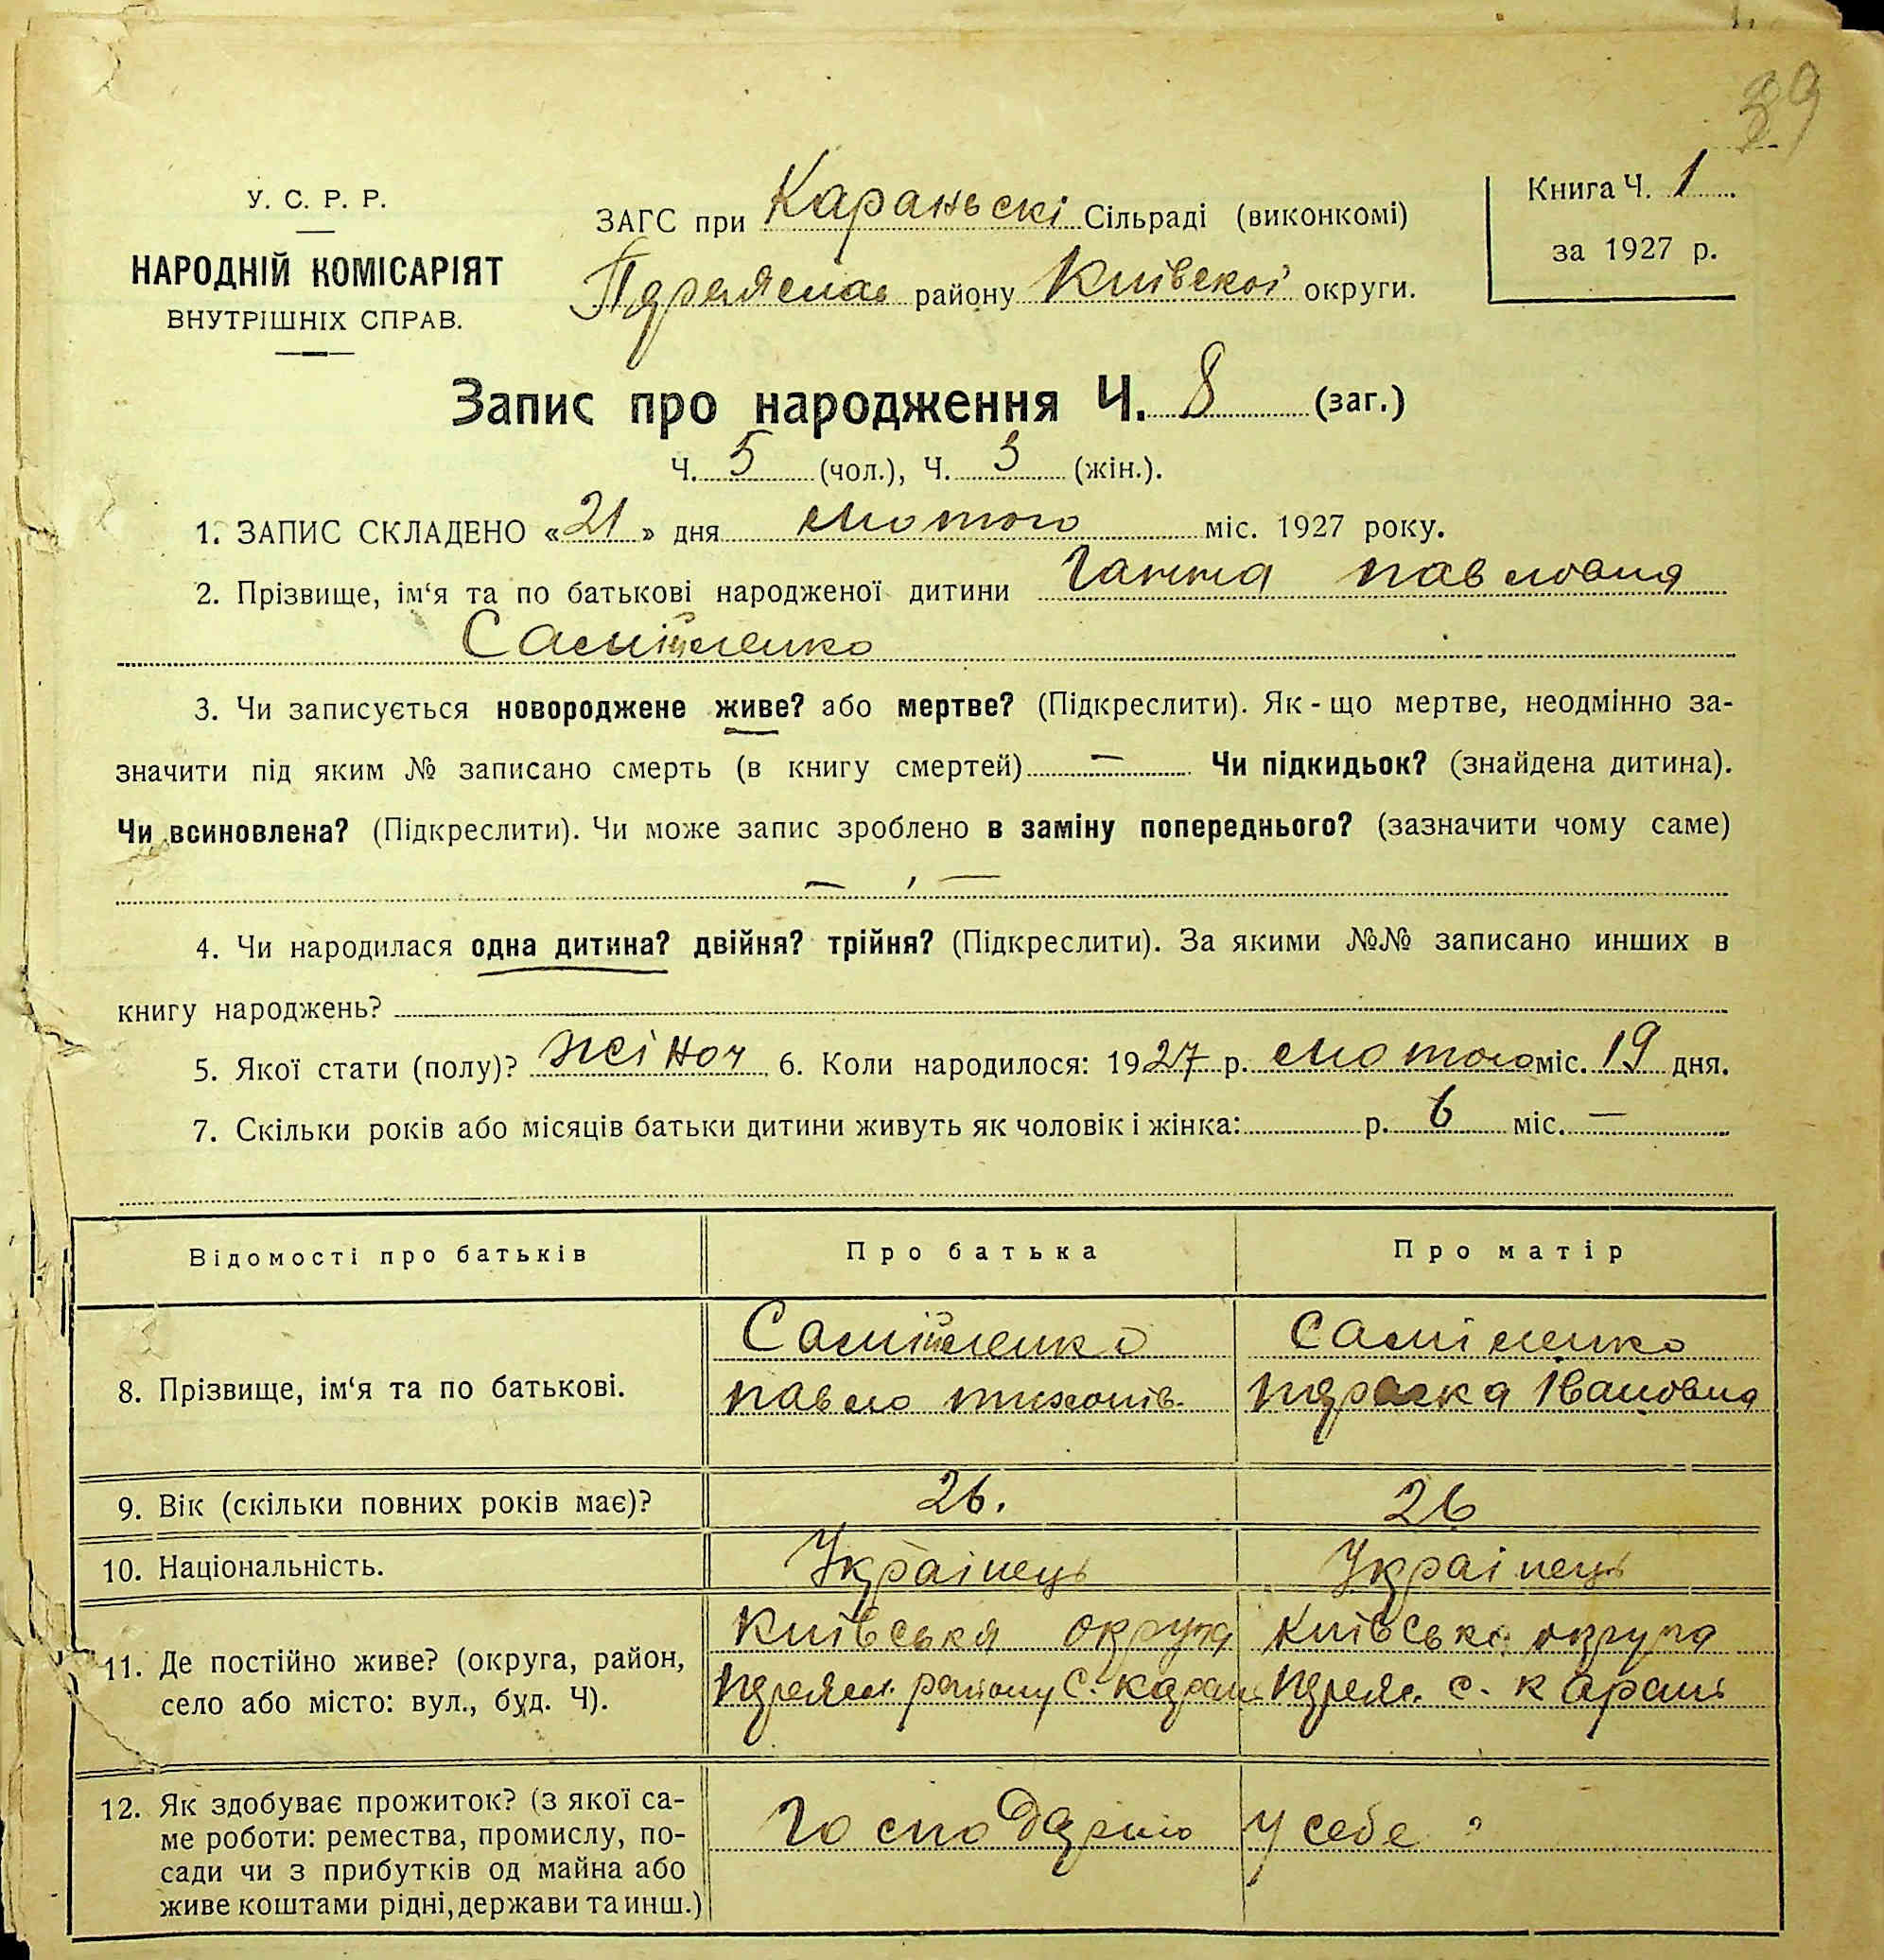 39
У. С. Р. Р.
НАРОДНІЙ КОМІСАРІЯТ
ВНУТРІШНІХ СПРАВ.
ЗАГС при Караньскі Сільраді (виконкомі)
району Київскоі округи.
Книга Ч. 1
за 1927 р.
Запис про народження Ч. 8 (заг.)
Ч. 5 (чол.), Ч. 3 (жін.).
1. ЗАПИС СКЛАДЕНО «21» дня лютого міс. 1927 року.
2. Прізвище, ім‘я та по батькові народженої дитини Ганна павловна
Самійленко
3. Чи записується новороджене живе? або мертве? (Підкреслити). Як - що мертве, неодмінно за-
значити під яким № записано смерть (в книгу смертей) — Чи підкидьок? (знайдена дитина).
Чи всиновлена? (Підкреслити). Чи може запис зроблено в заміну попереднього? (зазначити чому саме)
— , —
4. Чи народилася одна дитина? двійня? трійня? (Підкреслити). За якими №№ записано инших в
книгу народжень?
5. Якої стати (полу)? жіноч 6. Коли народилося: 1927 р. лютого міс. 19 дня.
7. Скільки років або місяців батьки дитини живуть як чоловік і жінка: р. 6 міс. —
Відомості про батьків Про батька Про матір
8. Прізвище, ім‘я та по батькові.
Самійленко
павло тихонів.
Саміленко
Іванов
9. Вік (скільки повних років має)? 26. 26
10. Національність. Украінець Украінець
11. Де постійно живе? (округа, район,
село або місто: вул., буд. Ч).
Київська округа
району с. Карань
Київська округа
с. Карань
12. Як здобуває прожиток? (з якої са-
ме роботи: ремества, промислу, по-
сади чи з прибутків од майна або
живе коштами рідні, держави та инш.)
Господарює
у себе